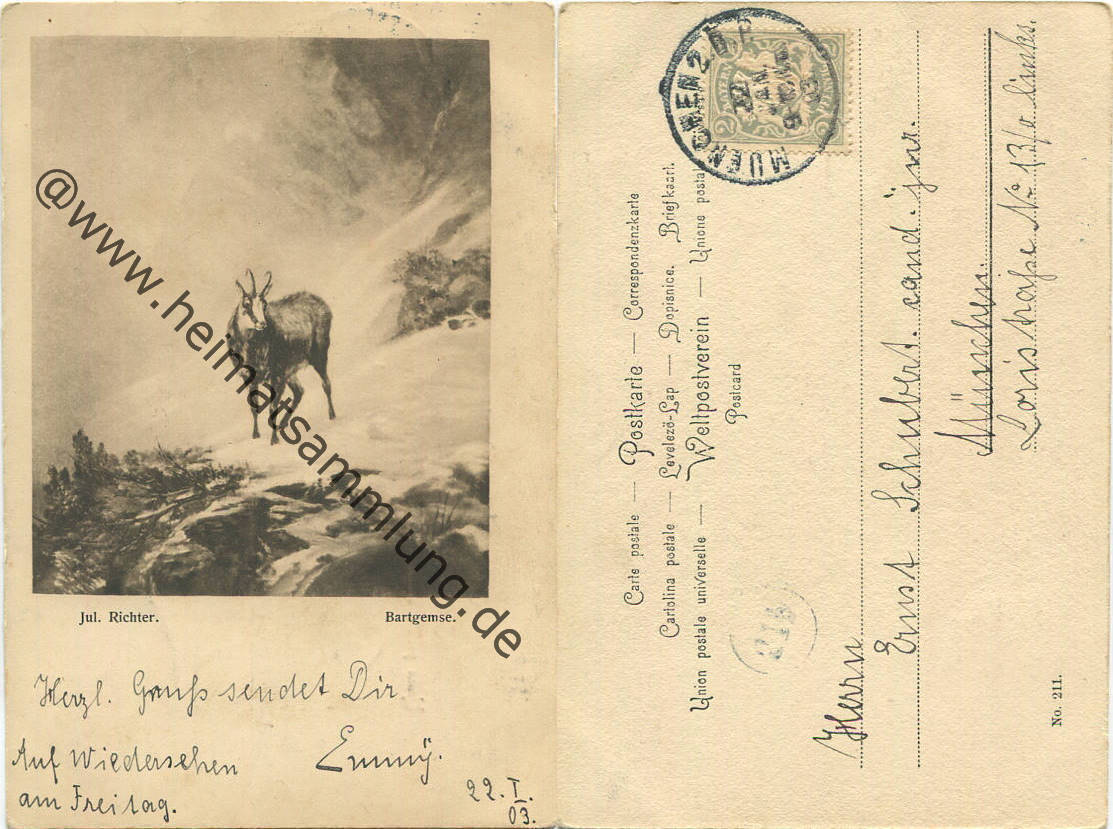 @www.heimatsammlung.de
Jul. Richter. Bartgemse.
Herzl. Gruß sendet Dir
Emmÿ.
Auf Wiedersehen
am Freitag.
22. I. 03.
MUENCHEN 2 B.P.
22 JAN.
03
2 2
Carte postale — Postkarte — Correspondenzkarte
Cartolina postale — Levelező-Lap — Dopisnice. Briefkaart.
Union postale universelle — Weltpostverein — Unione postal
Postcard
Herrn
Ernst Schubert. cand. jur.
München.
Loristraße No. 13/0 links.
No. 211.